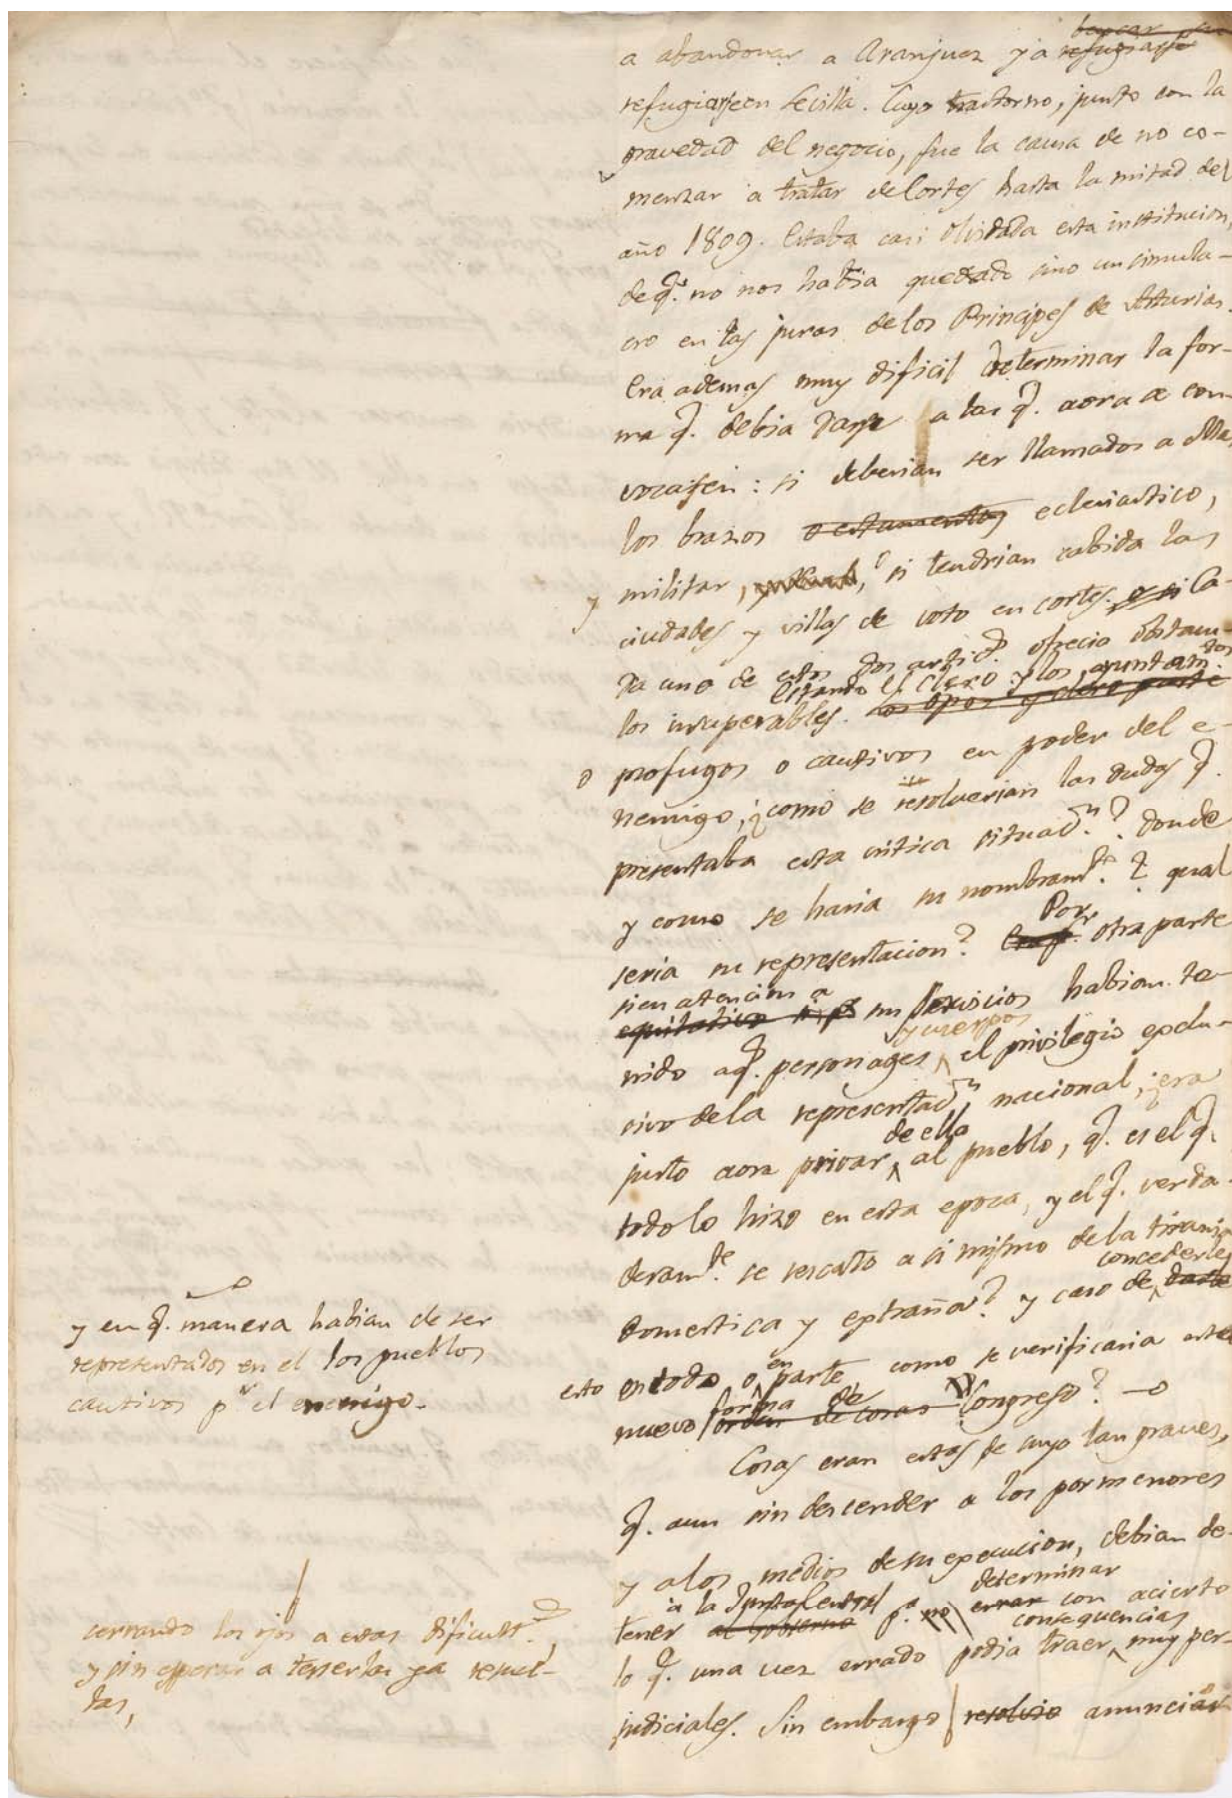 a abandonar a Aranjuez y a refugiarse
buscar su
refugiarse en Sevilla. Cuyo trastorno, junto con la
gravedad del negocio, fue la causa de no co-
menzar a tratar de Cortes hasta la mitad del
año 1809. Estaba casi olvidada esta institucion,
de q.e no nos habia quedado sino un simula-
cro en las juras de los Principes de Asturias.
Era ademas muy dificil determinar la for-
ma q. debia darse a las q. aora se con-
vocasen: si deberian ser llamados a ella
los brazos o estamentos eclesiastico,
y militar, si tendrian cabida las
ciudades y villas de voto en cortes. o si Ca-
da uno de estos dos artic.s ofrecio obstacu-
los insuperables. Estando el clero y los ayuntam.tos
los opos y clero parte
o profugos o cautivos en poder del e-
nemigo, ¿como se resolverian las dudas q.
presentaba esta critica situac.n? donde
y como se haria su nombram.to? ¿qual
seria su representacion? Por otra parte
si en atencion a
equitativo sus servicios habian te-
nido aq.s personages y cuerpos el privilegio esclu-
sivo de la representac.n nacional, ¿era
justo aora privar de ello al pueblo, q. es el q.
todo lo hizo en esta epoca, y el q. verda-
deram.te se rescato a si mismo de la tirania
domestica y estraña? y caso de concederle darle
esto en todo o en parte como se verificaria este
nuevo forma de orden de cosas Congreso?
y en q. manera habian de ser
representados en el los pueblos
cautivos p.r el enemigo.
Cosas eran estas de suyo tan graves,
q. aun sin descender a los pormenores
y a los medios de su execucion, debian de-
tener a la Junta Central al gobierno p.a no errar determinar con acierto
lo q. una vez errado podia traer consequencias muy per-
judiciales. Sin embargo resolvio anunciar
cerrando los ojos a estas dificult.s,
y sin esperar a tenerlas ya resuel-
tas,